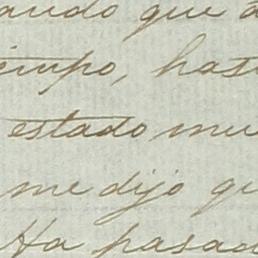 ando que a
iempo, hast
estado mu
me dijo qu
Ha pasad